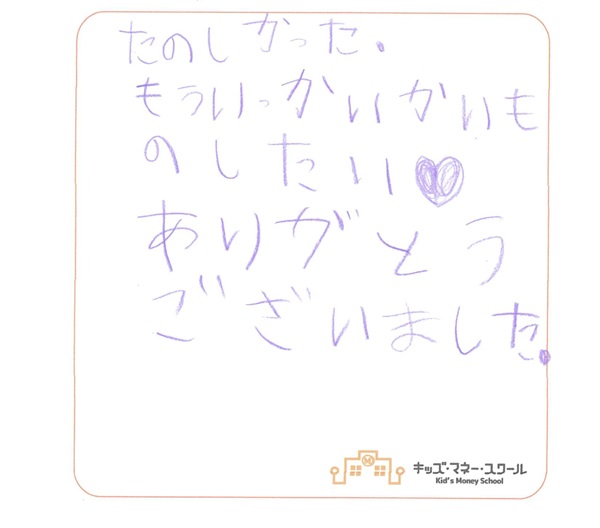 たのしかった。
もういっかいかいも
のしたい
ありがとう
ございました。
キッズ・マネー・スクール
Kid's Money School